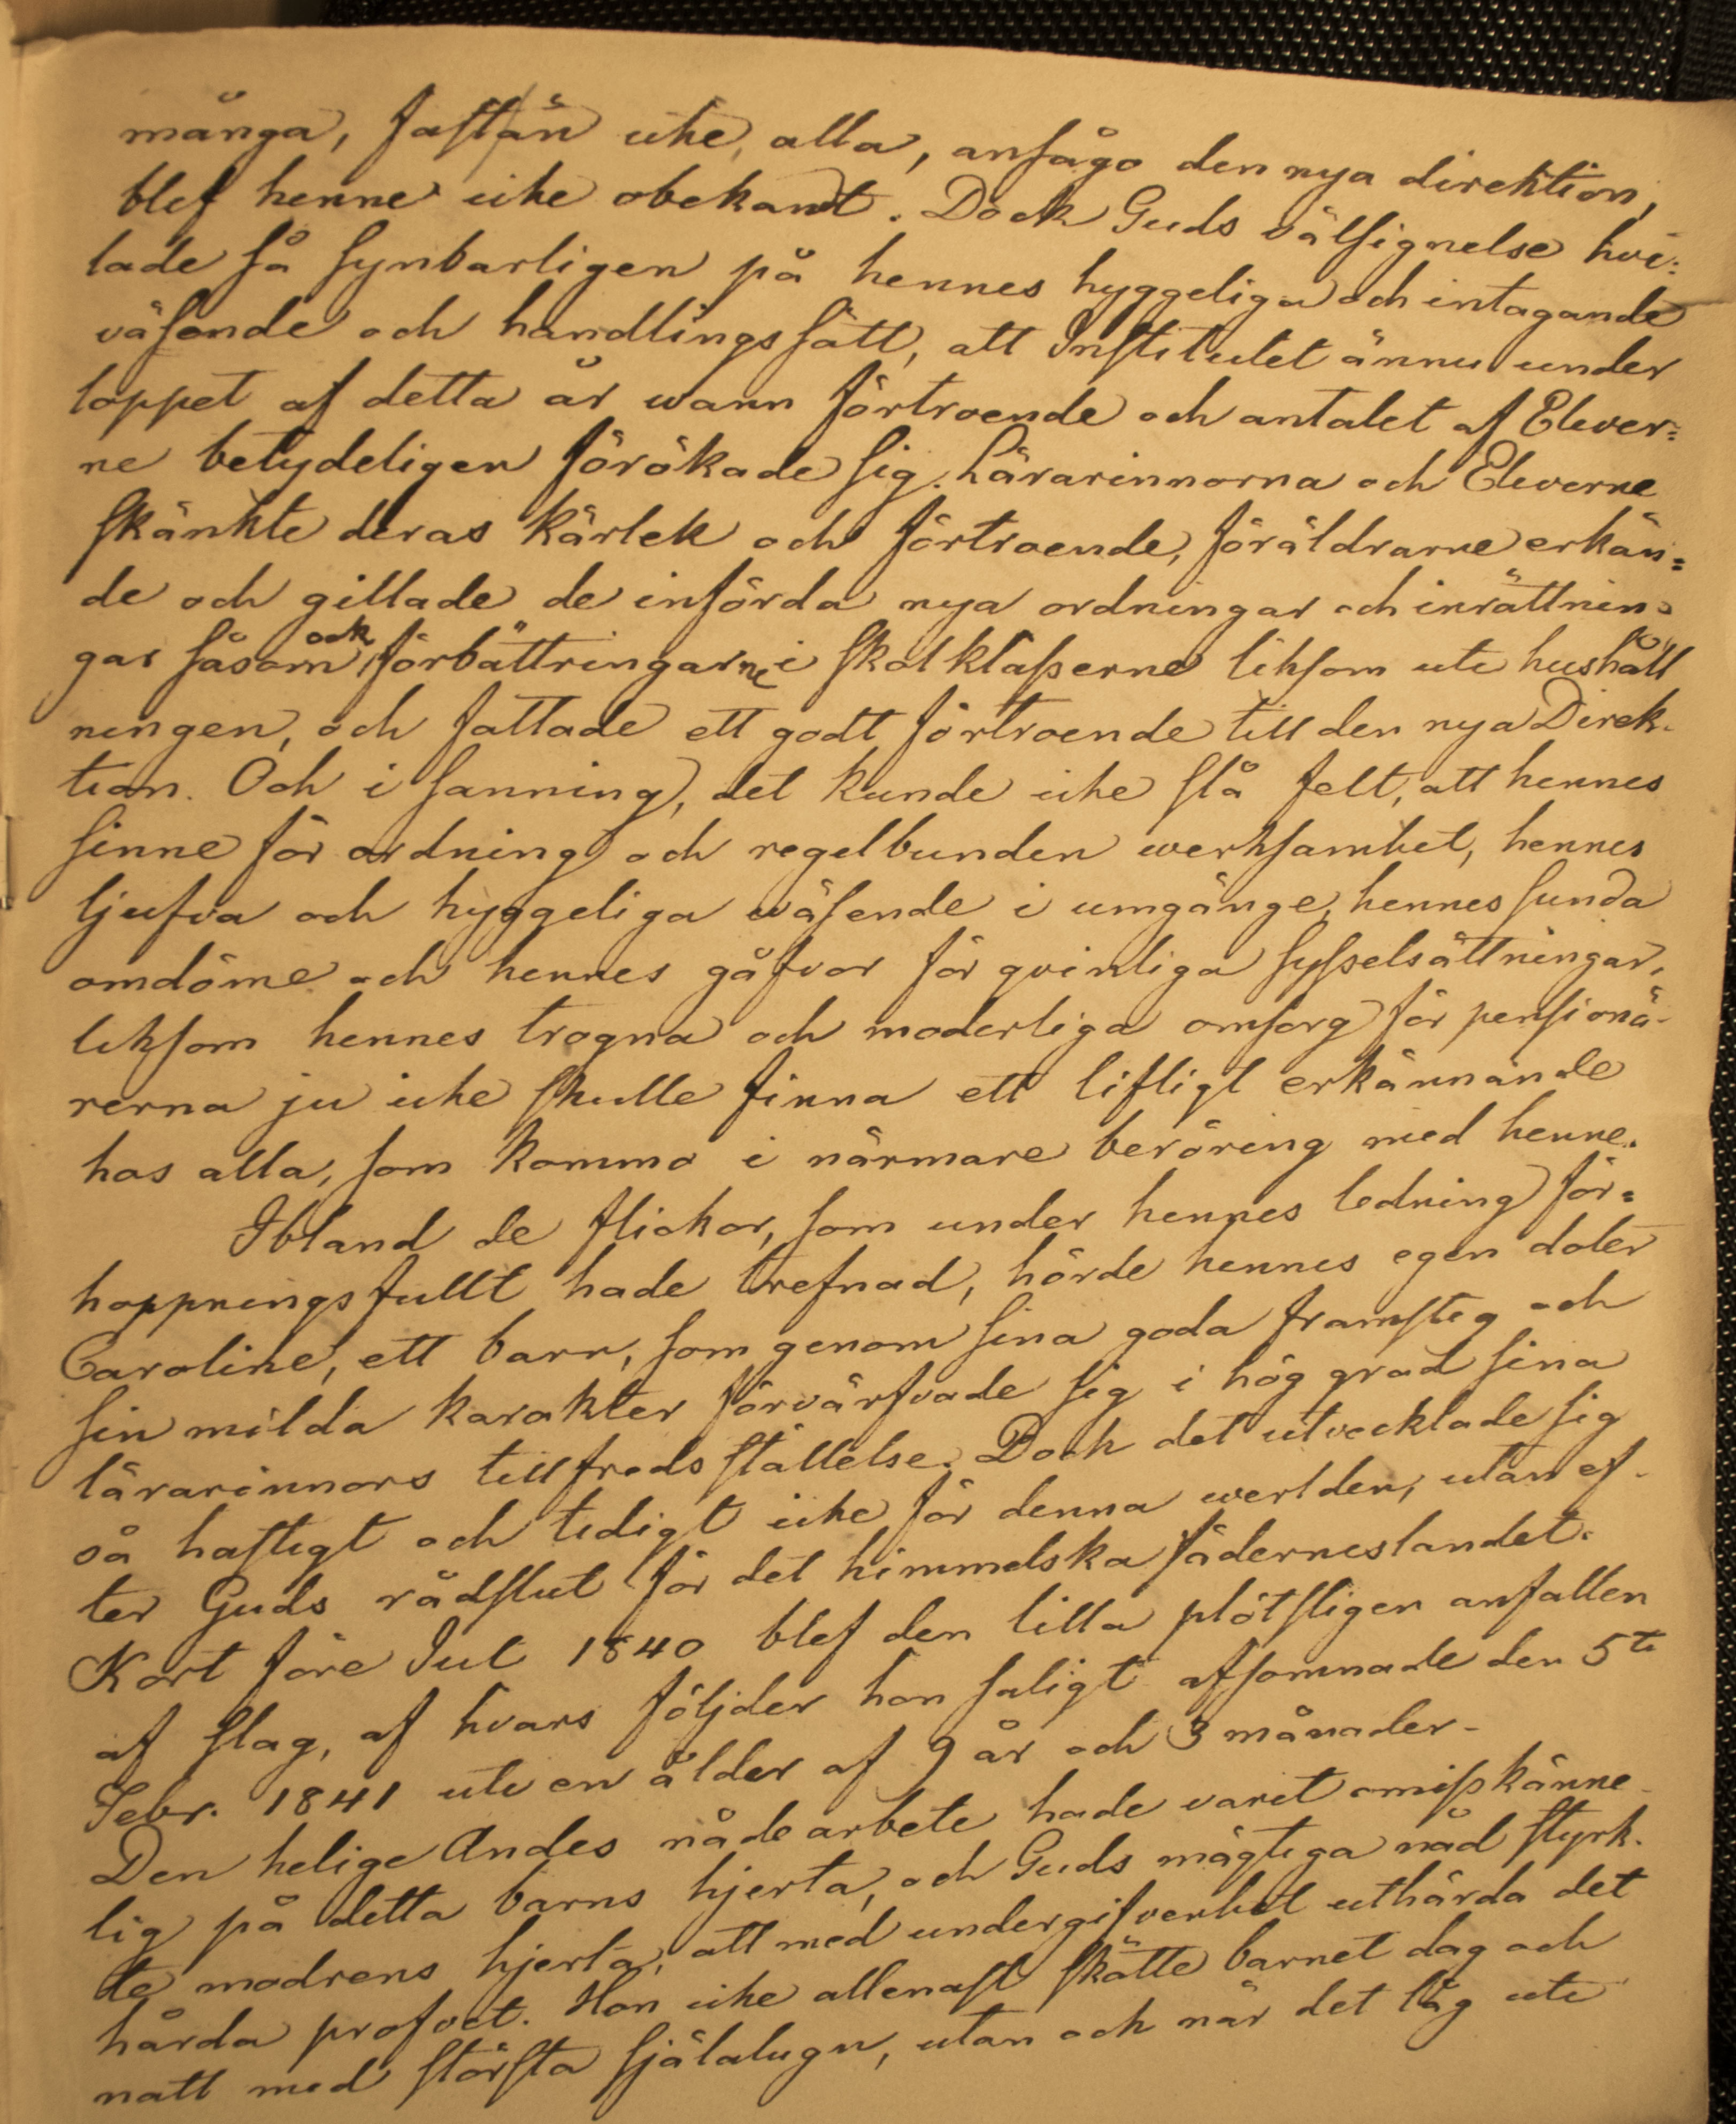 många, fastän icke, alla, ansågo den nya direktion,
blef henne icke obekant. Dock Guds välsignelse hvi:
lade så synbarligen på hennes hyggeliga och intagande
väsende och handlingssätt, att Institutet ännu under
loppet af detta år wann förtroende och antalet af Elever:
ne betydeligen förökade sig. Lärarinnorna och Eleverne
skänkte deras kärlek och förtroende, föräldrarne erkän:
de och gillade de införda nya ordningar och inrättnin:
gar såsom ock förbättringarne i skolklasserne liksom uti hushåll
ningen, och fattade ett godt förtroende till den nya Direk-
tion. Och i sanning, det kunde icke slå felt, att hennes
sinne för ordning och regelbunden werksamhet, hennes
ljufva och hyggeliga wäsende i umgänge, hennes sunda
omdöme och hennes gåfvor för qvinliga sysselsättningar,
liksom hennes trogna och moderliga omsorg för pensionä-
rerna ju icke skulle finna ett lifligt erkännande
hos alla, som kommo i närmare beröring med henne.
Ibland de flickor, som under hennes ledning för:
hoppningsfullt hade trefnad, hörde hennes egen doter
Caroline, ett barn, som genom sina goda framsteg och
sin milda karakter förvärfvade sig i hög grad sina
lärarinnors tillfredsställelse. Dock det utvecklade sig
så hastigt och tidigt icke för denna werlden, utan ef-
ter Guds rådslut för det himmelska fäderneslandet.
Kort före Jul 1840 blef den lilla plötsligen anfallen
af slag, af hvars följder hon saligt afsomnade den 5te
Febr. 1841 uti en ålder af 9 år och 3 månader.
Den helige Andes nådearbete hade varit omisskänne-
lig på detta barns hjerta, och Guds mägtiga nåd styrk-
te modrens hjerta, att med undergifvenhet uthärda det
hårda profvet. Hon icke allenast skötte barnet dag och
natt med största själalugn, utan och när det låg uti